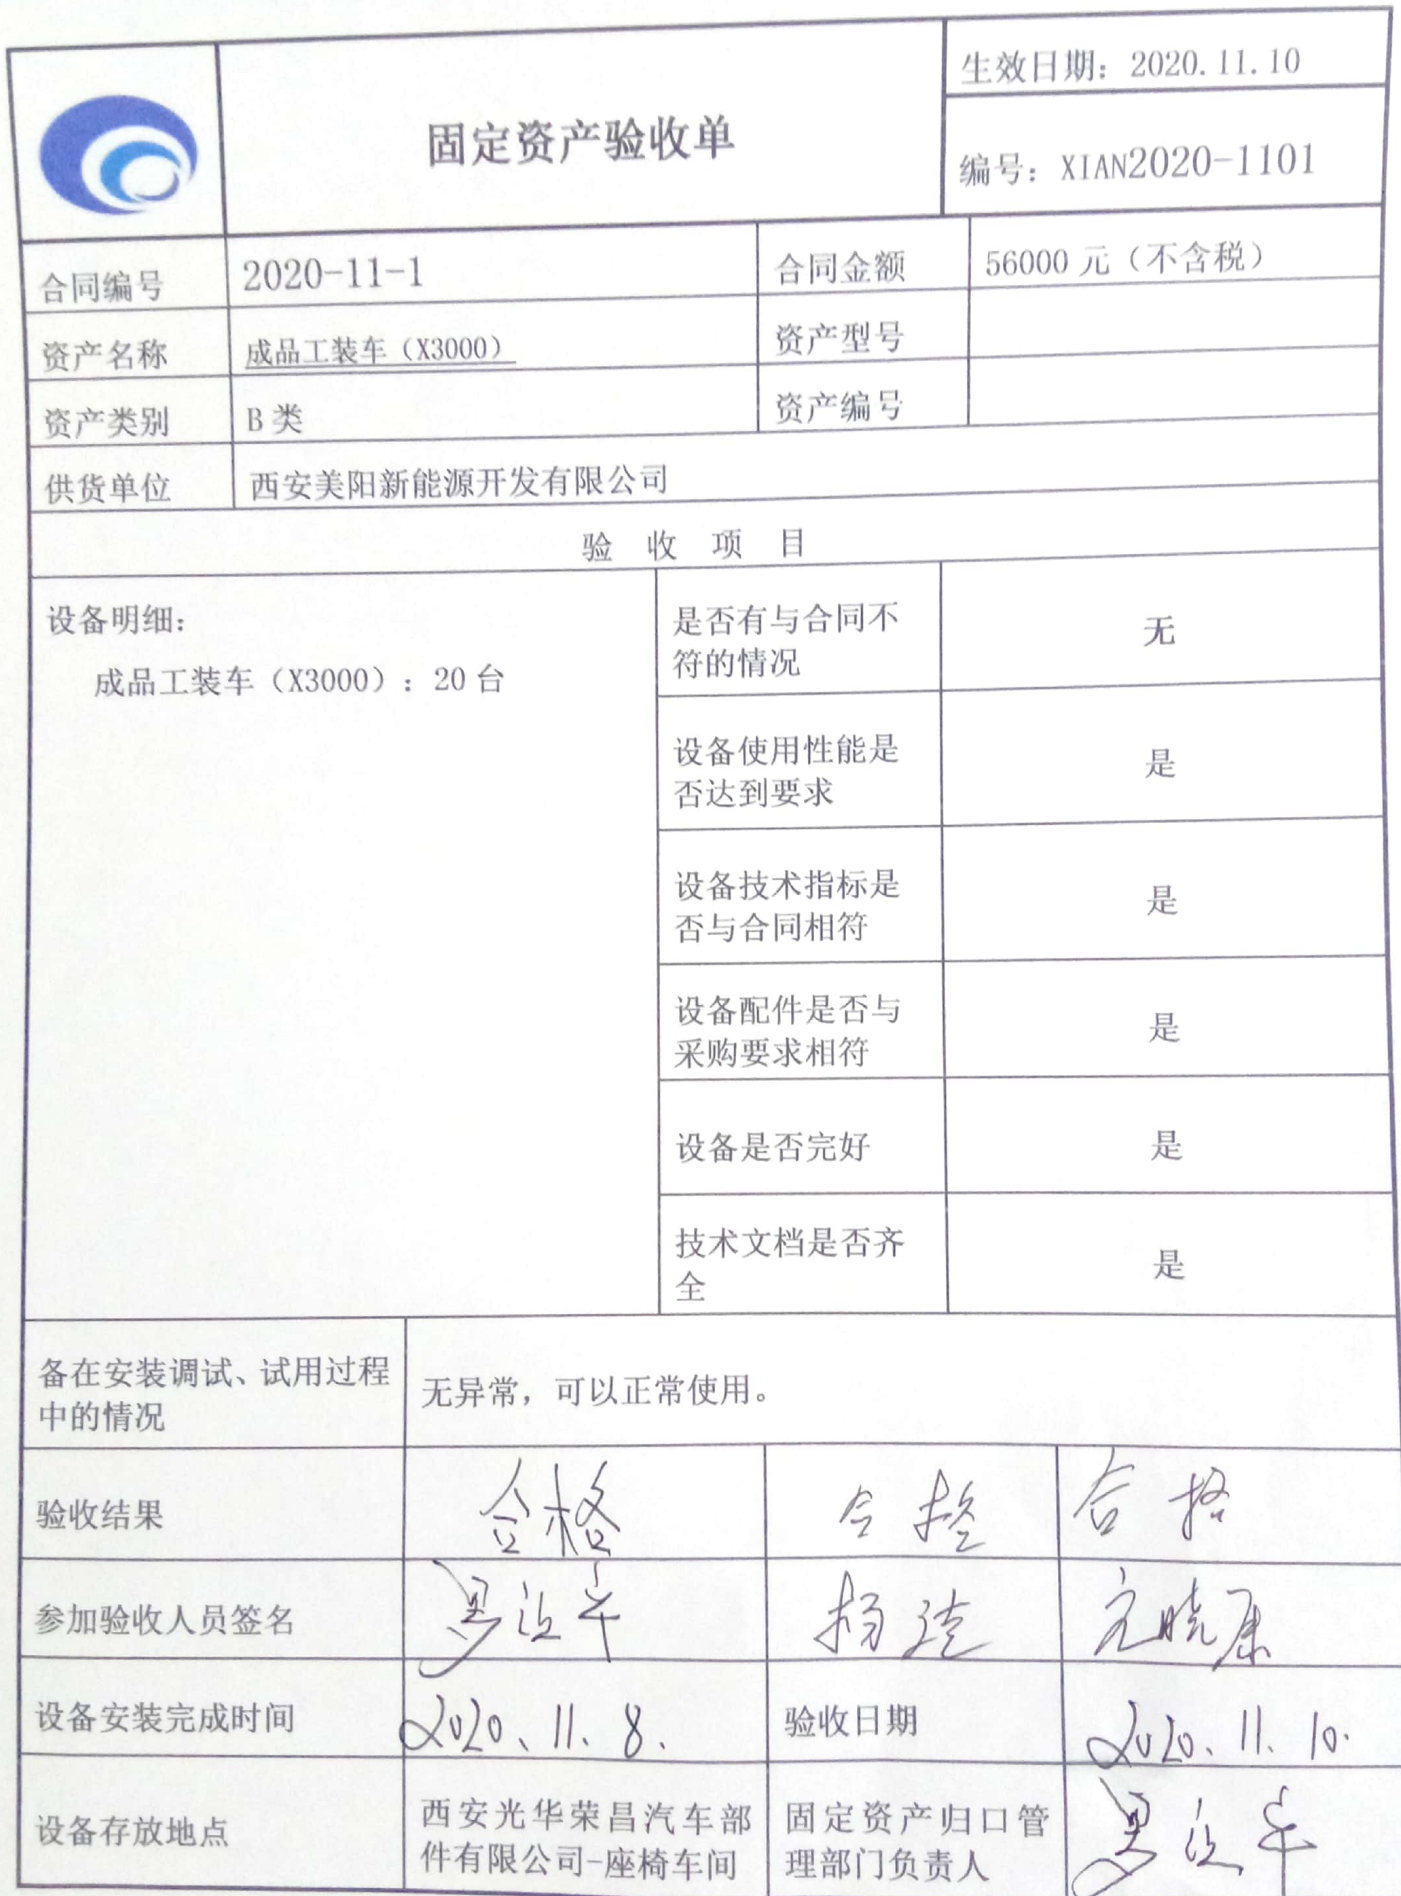 固定资产验收单
生效日期：2020.11.10
编号：XIAN2020-1101
合同编号
2020-11-1
合同金额
56000 元（不含税）
资产名称
成品工装车（X3000）
资产型号
资产类别
B 类
资产编号
供货单位
西安美阳新能源开发有限公司
验 收 项 目
设备明细：
成品工装车（X3000）：20 台
是否有与合同不
符的情况
无
设备使用性能是
否达到要求
是
设备技术指标是
否与合同相符
是
设备配件是否与
采购要求相符
是
设备是否完好
是
技术文档是否齐
全
是
备在安装调试、试用过程
中的情况
无异常，可以正常使用。
验收结果
合格
合格
合格
参加验收人员签名
设备安装完成时间
2020.11.8.
验收日期
2020.11.10.
设备存放地点
西安光华荣昌汽车部
件有限公司-座椅车间
固定资产归口管
理部门负责人